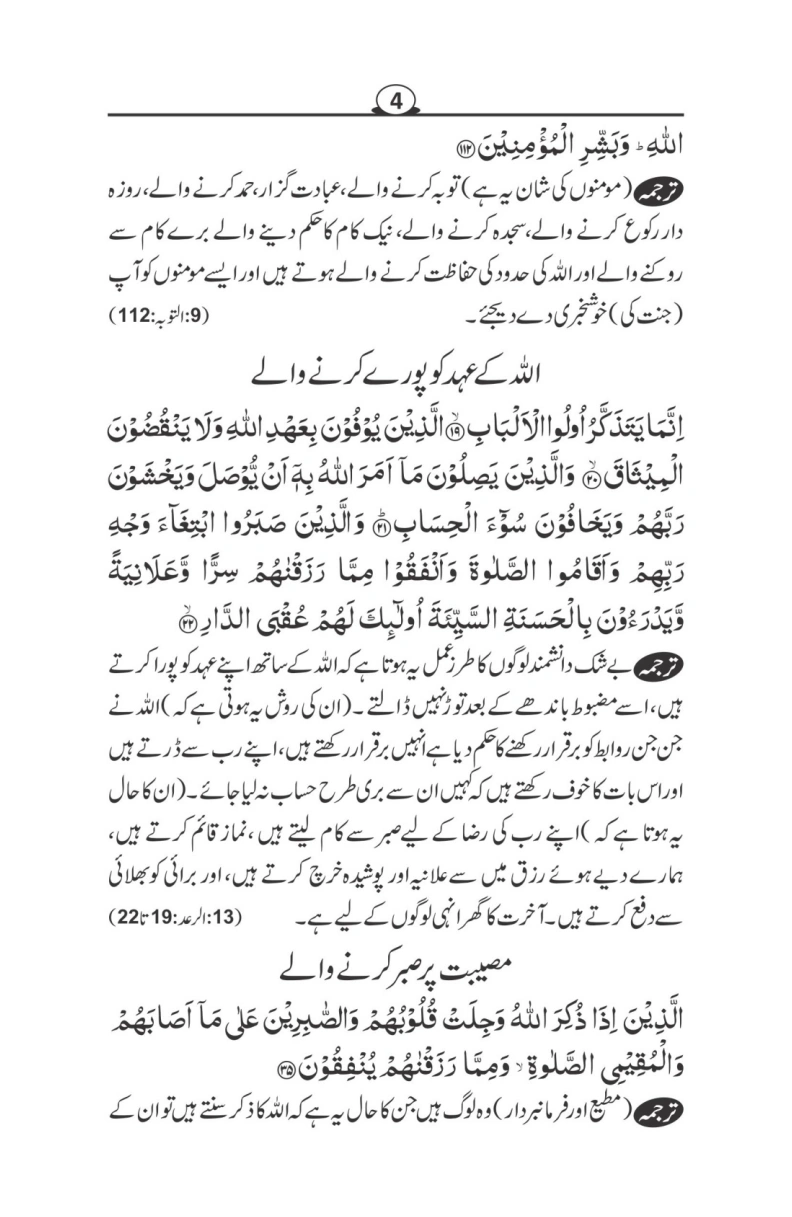 4
اللّٰهِ ؕ وَبَشِّرِ الْمُؤْمِنِيْنَ ﴿۱۱۲﴾
ترجمہ (مومنوں کی شان یہ ہے) توبہ کرنے والے، عبادت گزار، حمد کرنے والے، روزہ
دار رکوع کرنے والے، سجدہ کرنے والے، نیک کام کا حکم دینے والے برے کام سے
روکنے والے اور اللہ کی حدود کی حفاظت کرنے والے ہوتے ہیں اور ایسے مومنوں کو آپ
(جنت کی) خوشخبری دے دیجئے۔ (9:التوبہ:112)
اللہ کے عہد کو پورے کرنے والے
اِنَّمَا يَتَذَكَّرُ اُولُوا الْاَلْبَابِ ﴿۱۹﴾ۙ الَّذِيْنَ يُوْفُوْنَ بِعَهْدِ اللّٰهِ وَلَا يَنْقُضُوْنَ
الْمِيْثَاقَ ﴿۲۰﴾ۙ وَالَّذِيْنَ يَصِلُوْنَ مَاۤ اَمَرَ اللّٰهُ بِهٖۤ اَنْ يُّوْصَلَ وَيَخْشَوْنَ
رَبَّهُمْ وَيَخَافُوْنَ سُوْٓءَ الْحِسَابِ ﴿۲۱﴾ؕ وَالَّذِيْنَ صَبَرُوا ابْتِغَآءَ وَجْهِ
رَبِّهِمْ وَاَقَامُوا الصَّلٰوةَ وَاَنْفَقُوْا مِمَّا رَزَقْنٰهُمْ سِرًّا وَّعَلَانِيَةً
وَّيَدْرَءُوْنَ بِالْحَسَنَةِ السَّيِّئَةَ اُولٰٓئِكَ لَهُمْ عُقْبَى الدَّارِ ﴿۲۲﴾ۙ
ترجمہ بے شک دانشمند لوگوں کا طرز عمل یہ ہوتا ہے کہ اللہ کے ساتھ اپنے عہد کو پورا کرتے
ہیں، اسے مضبوط باندھے کے بعد توڑ نہیں ڈالتے۔ (ان کی روش یہ ہوتی ہے کہ) اللہ نے
جن جن روابط کو برقرار رکھنے کا حکم دیا ہے انہیں برقرار رکھتے ہیں، اپنے رب سے ڈرتے ہیں
اور اس بات کا خوف رکھتے ہیں کہ کہیں ان سے بری طرح حساب نہ لیا جائے۔ (ان کا حال
یہ ہوتا ہے کہ) اپنے رب کی رضا کے لیے صبر سے کام لیتے ہیں، نماز قائم کرتے ہیں،
ہمارے دیے ہوئے رزق میں سے علانیہ اور پوشیدہ خرچ کرتے ہیں، اور برائی کو بھلائی
سے دفع کرتے ہیں۔ آخرت کا گھر انہی لوگوں کے لیے ہے۔ (13:الرعد:19تا22)
مصیبت پر صبر کرنے والے
الَّذِيْنَ اِذَا ذُكِرَ اللّٰهُ وَجِلَتْ قُلُوْبُهُمْ وَالصّٰبِرِيْنَ عَلٰى مَاۤ اَصَابَهُمْ
وَالْمُقِيْمِى الصَّلٰوةِ ۙ وَمِمَّا رَزَقْنٰهُمْ يُنْفِقُوْنَ ﴿۳۵﴾
ترجمہ (مطیع اور فرمانبردار) وہ لوگ ہیں جن کا حال یہ ہے کہ اللہ کا ذکر سنتے ہیں تو ان کے